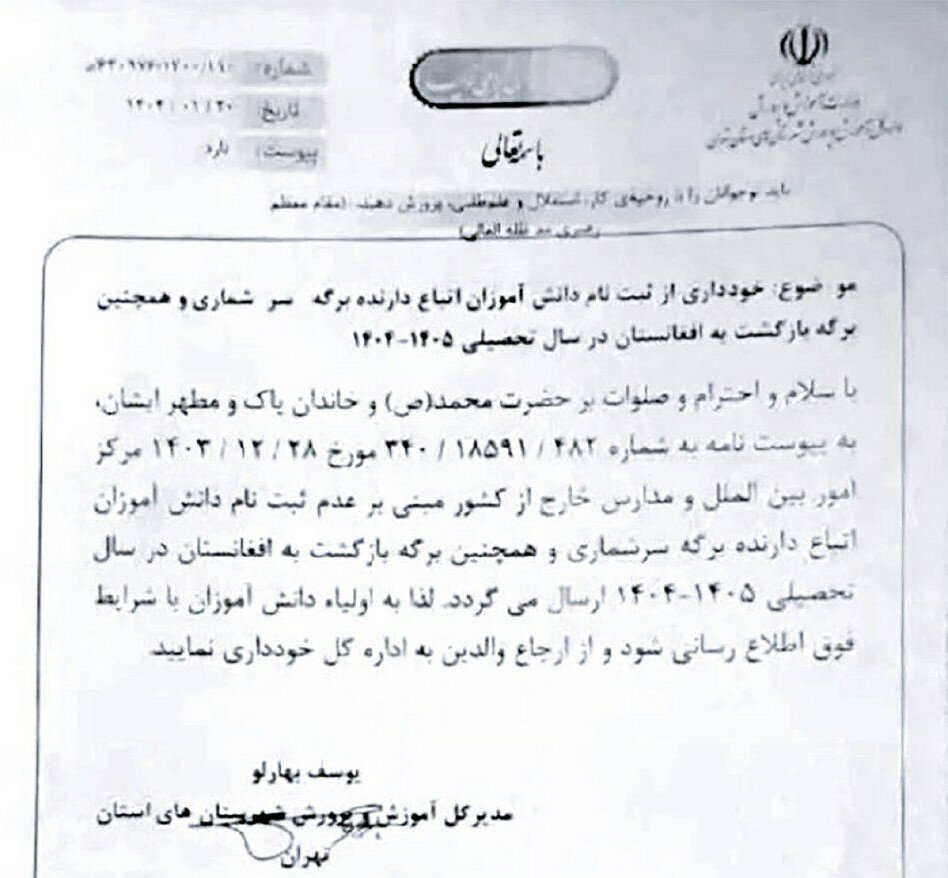 وزارت آموزش و پرورش
اداره کل آموزش و پرورش شهرستان‌های استان تهران
شماره:
تاریخ: ۱۴۰۴/۰۱/۲۰
پیوست: دارد
باسمه‌تعالی
باید نوجوانان را با روحیه‌ی کار، استقلال و علم‌طلبی، پرورش دهید. (مقام معظم
رهبری مد ظله العالی)
مو ضوع: خودداری از ثبت نام دانش آموزان اتباع دارنده برگه سر شماری و همچنین
برگه بازگشت به افغانستان در سال تحصیلی ۱۴۰۵-۱۴۰۴
با سلام و احترام و صلوات بر حضرت محمد(ص) و خاندان پاک و مطهر ایشان،
به پیوست نامه به شماره ۴۸۲ / ۱۸۵۹۱ / ۳۴۰ مورخ ۲۸ / ۱۲ / ۱۴۰۳ مرکز
امور بین الملل و مدارس خارج از کشور مبنی بر عدم ثبت نام دانش آموزان
اتباع دارنده برگه سرشماری و همچنین برگه بازگشت به افغانستان در سال
تحصیلی ۱۴۰۵-۱۴۰۴ ارسال می گردد. لذا به اولیاء دانش آموزان با شرایط
فوق اطلاع رسانی شود و از ارجاع والدین به اداره کل خودداری نمایید.
یوسف بهارلو
مدیرکل آموزش و پرورش شهرستان های استان
تهران